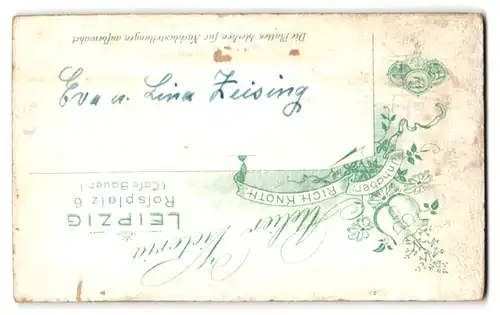 Atelier Victoria
Inhaber:
RICH. KNOTH.
LEIPZIG
Roßplatz 6
(Café Bauer)
Eva u. Lina Zeising
Die Platten bleiben für Nachbestellungen aufbewahrt